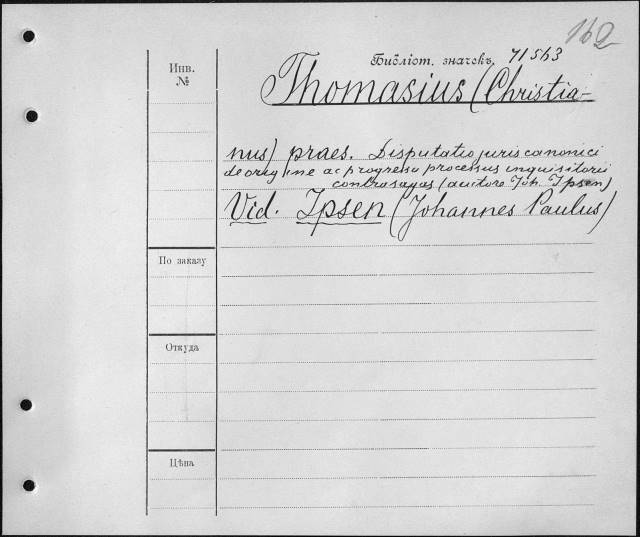 162
Библіот. значекъ 71563
Инв.
№
Thomasius (Christia-
nus) praes. Disputatio juris canonici
de origine ac progressu processus inquisitorii
contra sagas (auctore Joh. Ipsen)
Vid. Ipsen (Johannes Paulus)
По заказу
Откуда
Цѣна